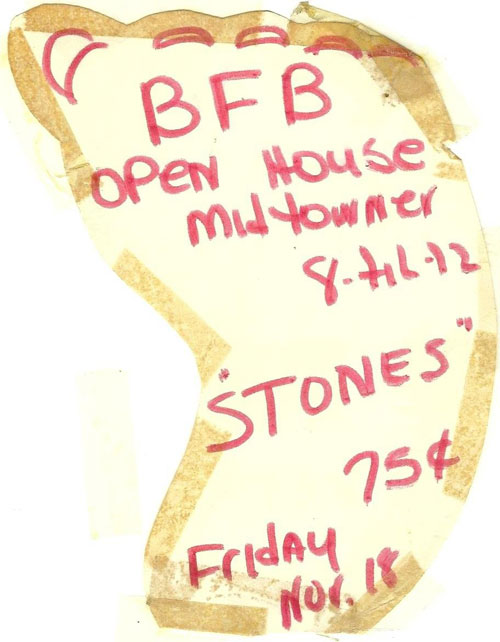 BFB
OPEN HOUSE
midtowner
8-til-12
"STONES"
75¢
FRIDAY
NOV. 18